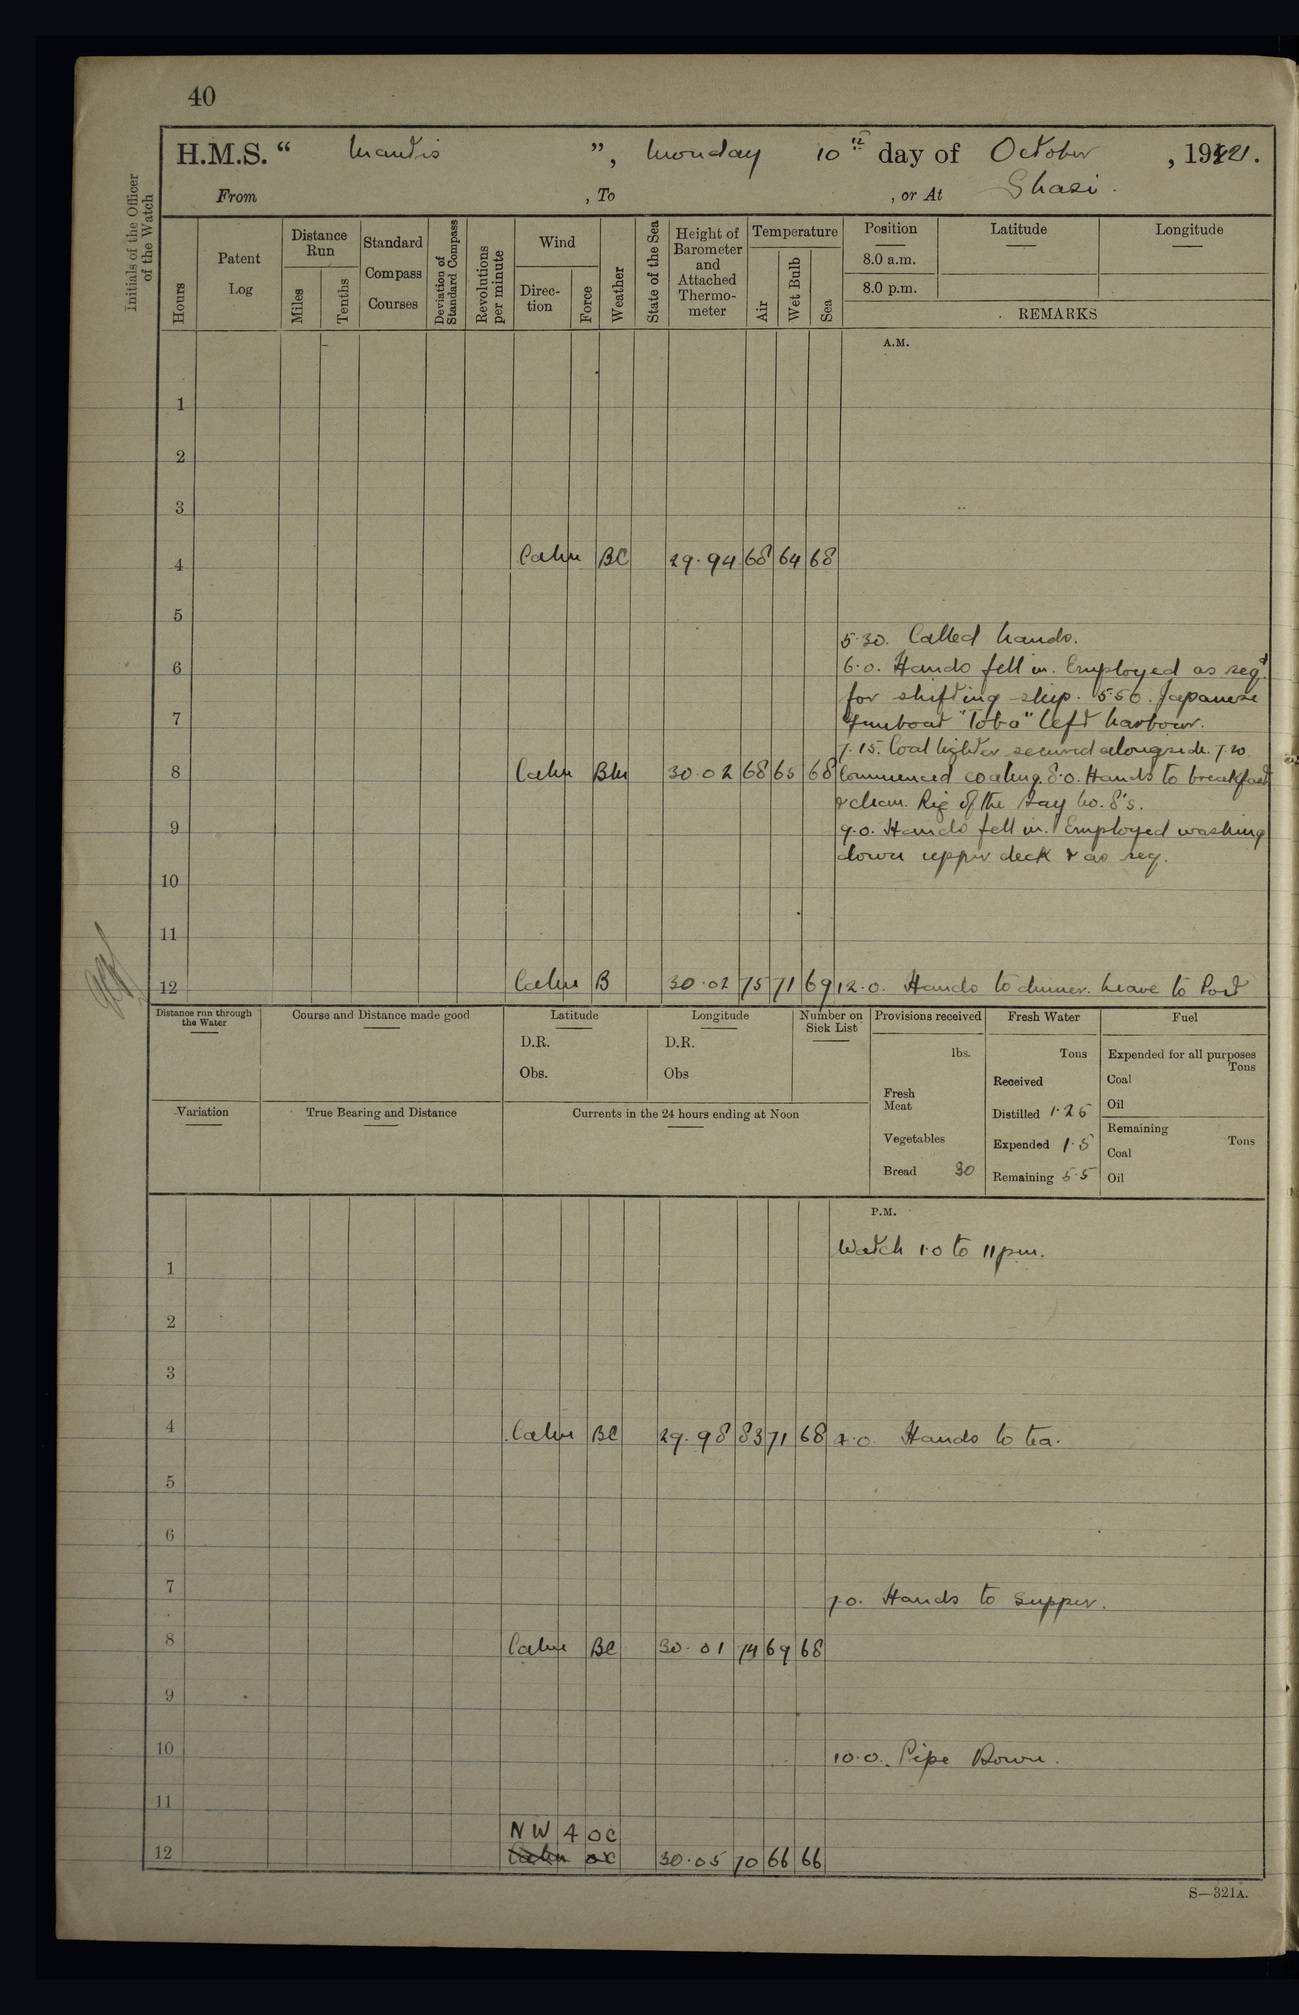 40
H.M.S. “ Mantis ”, Monday 10th day of October , 1921.
From , To , or At Shasi.
Initials of the Officer of the Watch
Hours
Patent Log
Distance Run
Miles
Tenths
Standard Compass Courses
Deviation of Standard Compass
Revolutions per minute
Wind
Direction
Force
Weather
State of the Sea
Height of Barometer and Attached Thermometer
Temperature
Air
Wet Bulb
Sea
Position
8.0 a.m.
8.0 p.m.
Latitude
Longitude
REMARKS
A.M.
1
2
3
4 Calm BC 29.94 68 64 68
5
5.30. Called hands.
6 6.0. Hands fell in. Employed as reqd
for shifting ship. 5.50. Japanese
7 Gunboat "Toba" left harbour.
7.15. Coal lighter secured alongside. 7.20
8 Calm Bm 30.02 68 65 68 Commenced coaling. 8.0. Hands to breakfast
& clean. Rig of the day No. 8's.
9 9.0. Hands fell in. Employed washing
down upper deck & as req.
10
11
12 Calm B 30.02 75 71 69 12.0. Hands to dinner. Leave to Port
Distance run through the Water
Course and Distance made good
Latitude
D.R.
Obs.
Longitude
D.R.
Obs
Number on Sick List
Provisions received
lbs.
Fresh Meat
Vegetables
Bread 30
Fresh Water
Tons
Received
Distilled 1.25
Expended 1.5
Remaining 5.5
Fuel
Expended for all purposes
Tons
Coal
Oil
Remaining
Tons
Coal
Oil
Variation
True Bearing and Distance
Currents in the 24 hours ending at Noon
P.M.
Watch 1.0 to 11 pm.
1
2
3
4 Calm BC 29.98 83 71 68 4.0. Hands to tea.
5
6
7 7.0. Hands to supper.
8 Calm BC 30.01 74 69 68
9
10 10.0. Pipe Down.
11
NW 4 OC
12 Calm OC 30.05 70 66 66
S—321A.